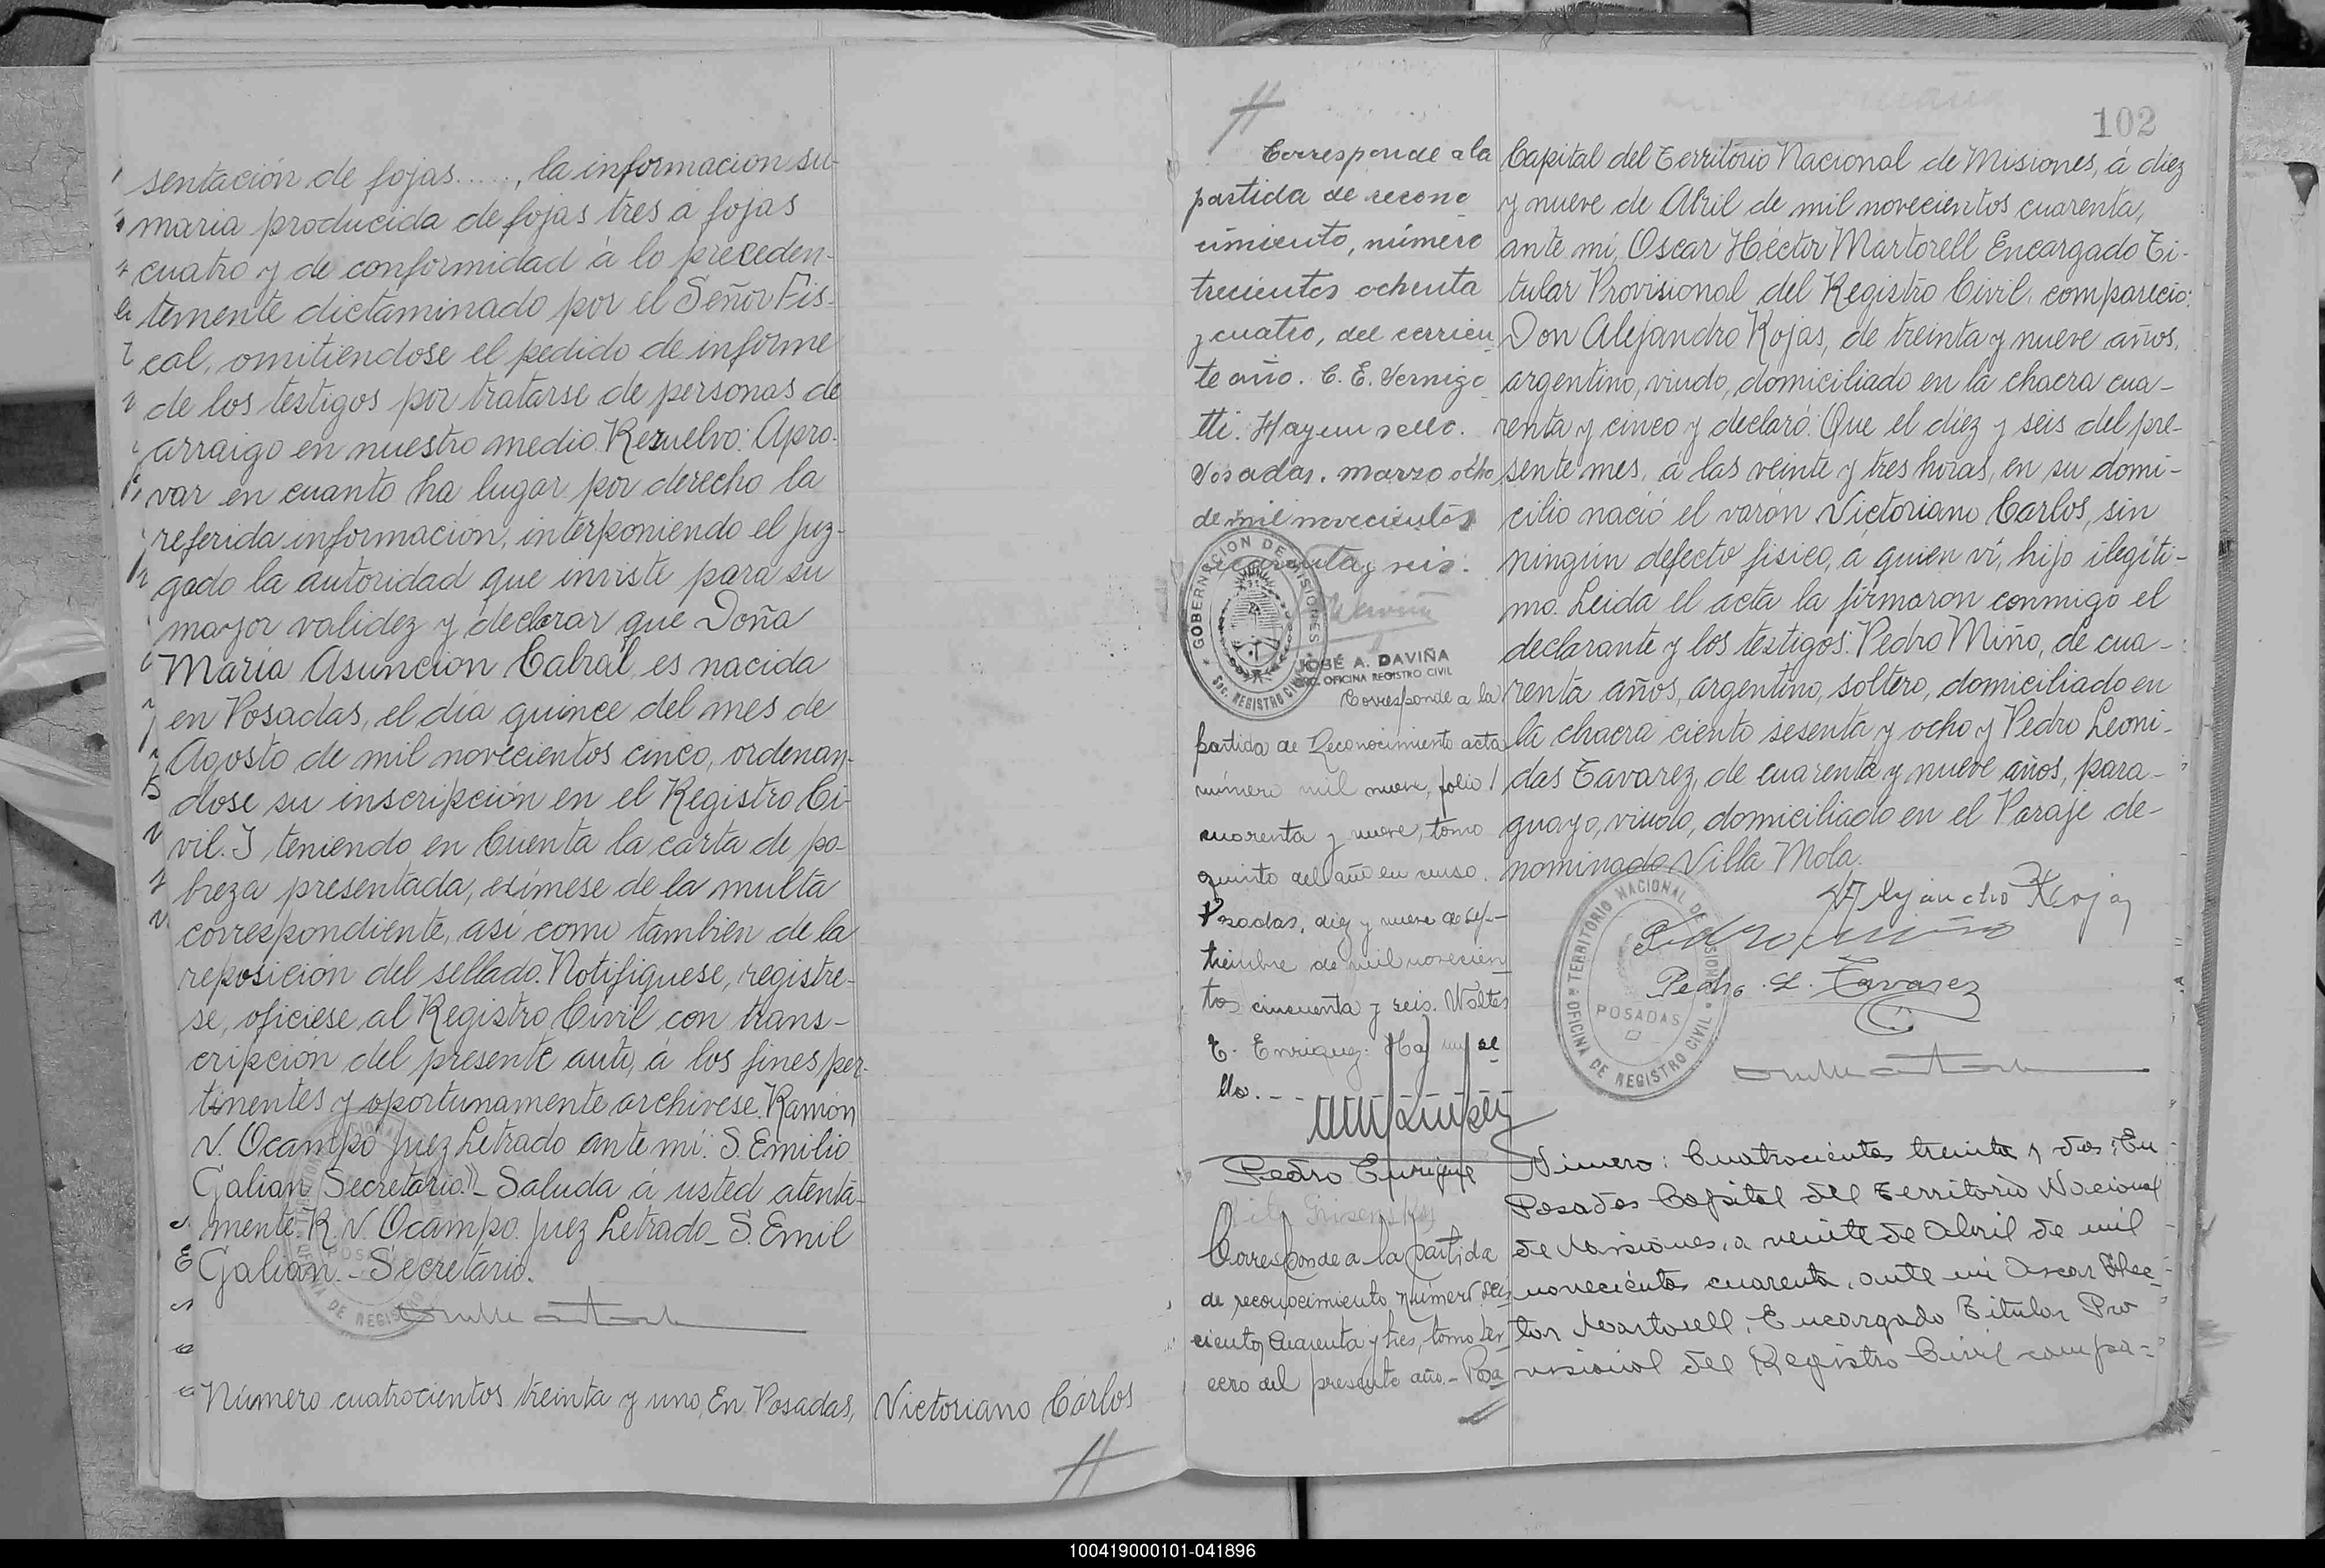 sentación de fojas....., la informacion su-
maria producida de fojas tres a fojas
cuatro y de conformidad á lo preceden-
temente dictaminado por el Señor Fis-
cal, omitiendose el pedido de informe
de los testigos por tratarse de personas de
arraigo en nuestro medio. Rezuelvo: Apro-
var en cuanto ha lugar por derecho la
referida informacion, interponiendo el juz-
gado la autoridad que inviste para su
mayor validez y declarar que Doña
Maria Asuncion Cabral, es nacida
en Posadas, el dia quince del mes de
Agosto de mil novecientos cinco, ordenan-
dose su inscripción en el Registro Ci-
vil. I teniendo en Cuenta la carta de po-
breza presentada, exímese de la multa
correspondiente, así como tambien de la
reposición del sellado. Notifiquese, registre-
se, oficiese al Registro Civil con trans-
cripción del presente auto, á los fines per-
tinentes y oportunamente archivese. Ramón
V. Ocampo Juez Letrado ante mi: S. Emilio
Galian Secretario")_ Saluda á usted atenta-
mente. R. V. Ocampo. Juez Letrado_ S. Emil
Galian._ Secretario.
Número cuatrocientos treinta y uno, En Posadas,
Victoriano Carlos
Corresponde a la
partida de recono
cimiento, número
trecientos ochenta
y cuatro, del corrien
te año. C. E. Vernigo
tti. Hay un sello.
Posadas, marzo ocho
de mil novecientos
cuarenta y seis.
GOBERNACION DE MISIONES
SOC. REGISTRO CIVIL
JOSÉ A. DAVIÑA
OFICINA REGISTRO CIVIL
Corresponde a la
partida de Reconocimiento acta
número mil nueve, folio
cuarenta y nueve, tomo
quinto del año en curso.
Posadas, diez y nueve de sep-
tiembre de mil novecien
tos cincuenta y seis. Walter
E. Enriquez. Hay un se
llo.--
Pedro Enrique
Corresponde a la partida
de reconocimiento número seis
cientos cuarenta y tres, tomo ter
cero del presente año.- Posa
102
Capital del Territorio Nacional de Misiones, á diez
y nueve de Abril de mil novecientos cuarenta,
ante mi, Oscar Héctor Martorell Encargado Ti-
tular Provisional del Registro Civil, comparecio:
Don Alejandro Rojas, de treinta y nueve años,
argentino, viudo, domiciliado en la chacra cua-
renta y cinco y declaró: Que el diez y seis del pre-
sente mes, á las veinte y tres horas, en su domi-
cilio nació el varón Victoriano Carlos, sin
ningún defecto fisico, á quien ví, hijo ilegíti-
mo. Leida el acta la firmaron conmigo el
declarante y los testigos: Pedro Miño, de cua-
renta años, argentino, soltero, domiciliado en
la chacra ciento sesenta y ocho y Pedro Leoni-
das Tavarez, de cuarenta y nueve años, para-
guayo, viudo, domiciliado en el Paraje de-
nominado Villa Mola.
Alejandro Rojas
Pedro Miño
Pedro. L. Tavarez
TERRITORIO NACIONAL DE MISIONES
POSADAS
OFICINA DE REGISTRO CIVIL
Número: Cuatrocientos treinta y dos; En
Posadas Capital del Territorio Nacional
de Misiones, a veinte de Abril de mil
novecientos cuarenta, ante mi Oscar Hec-
tor Martorell, Encargado Titular Pro
visional del Registro Civil compa-
100419000101-041896